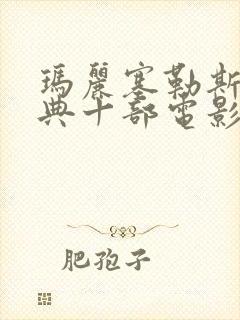 瑪麗塞勒斯
典十部電影
肥孢子